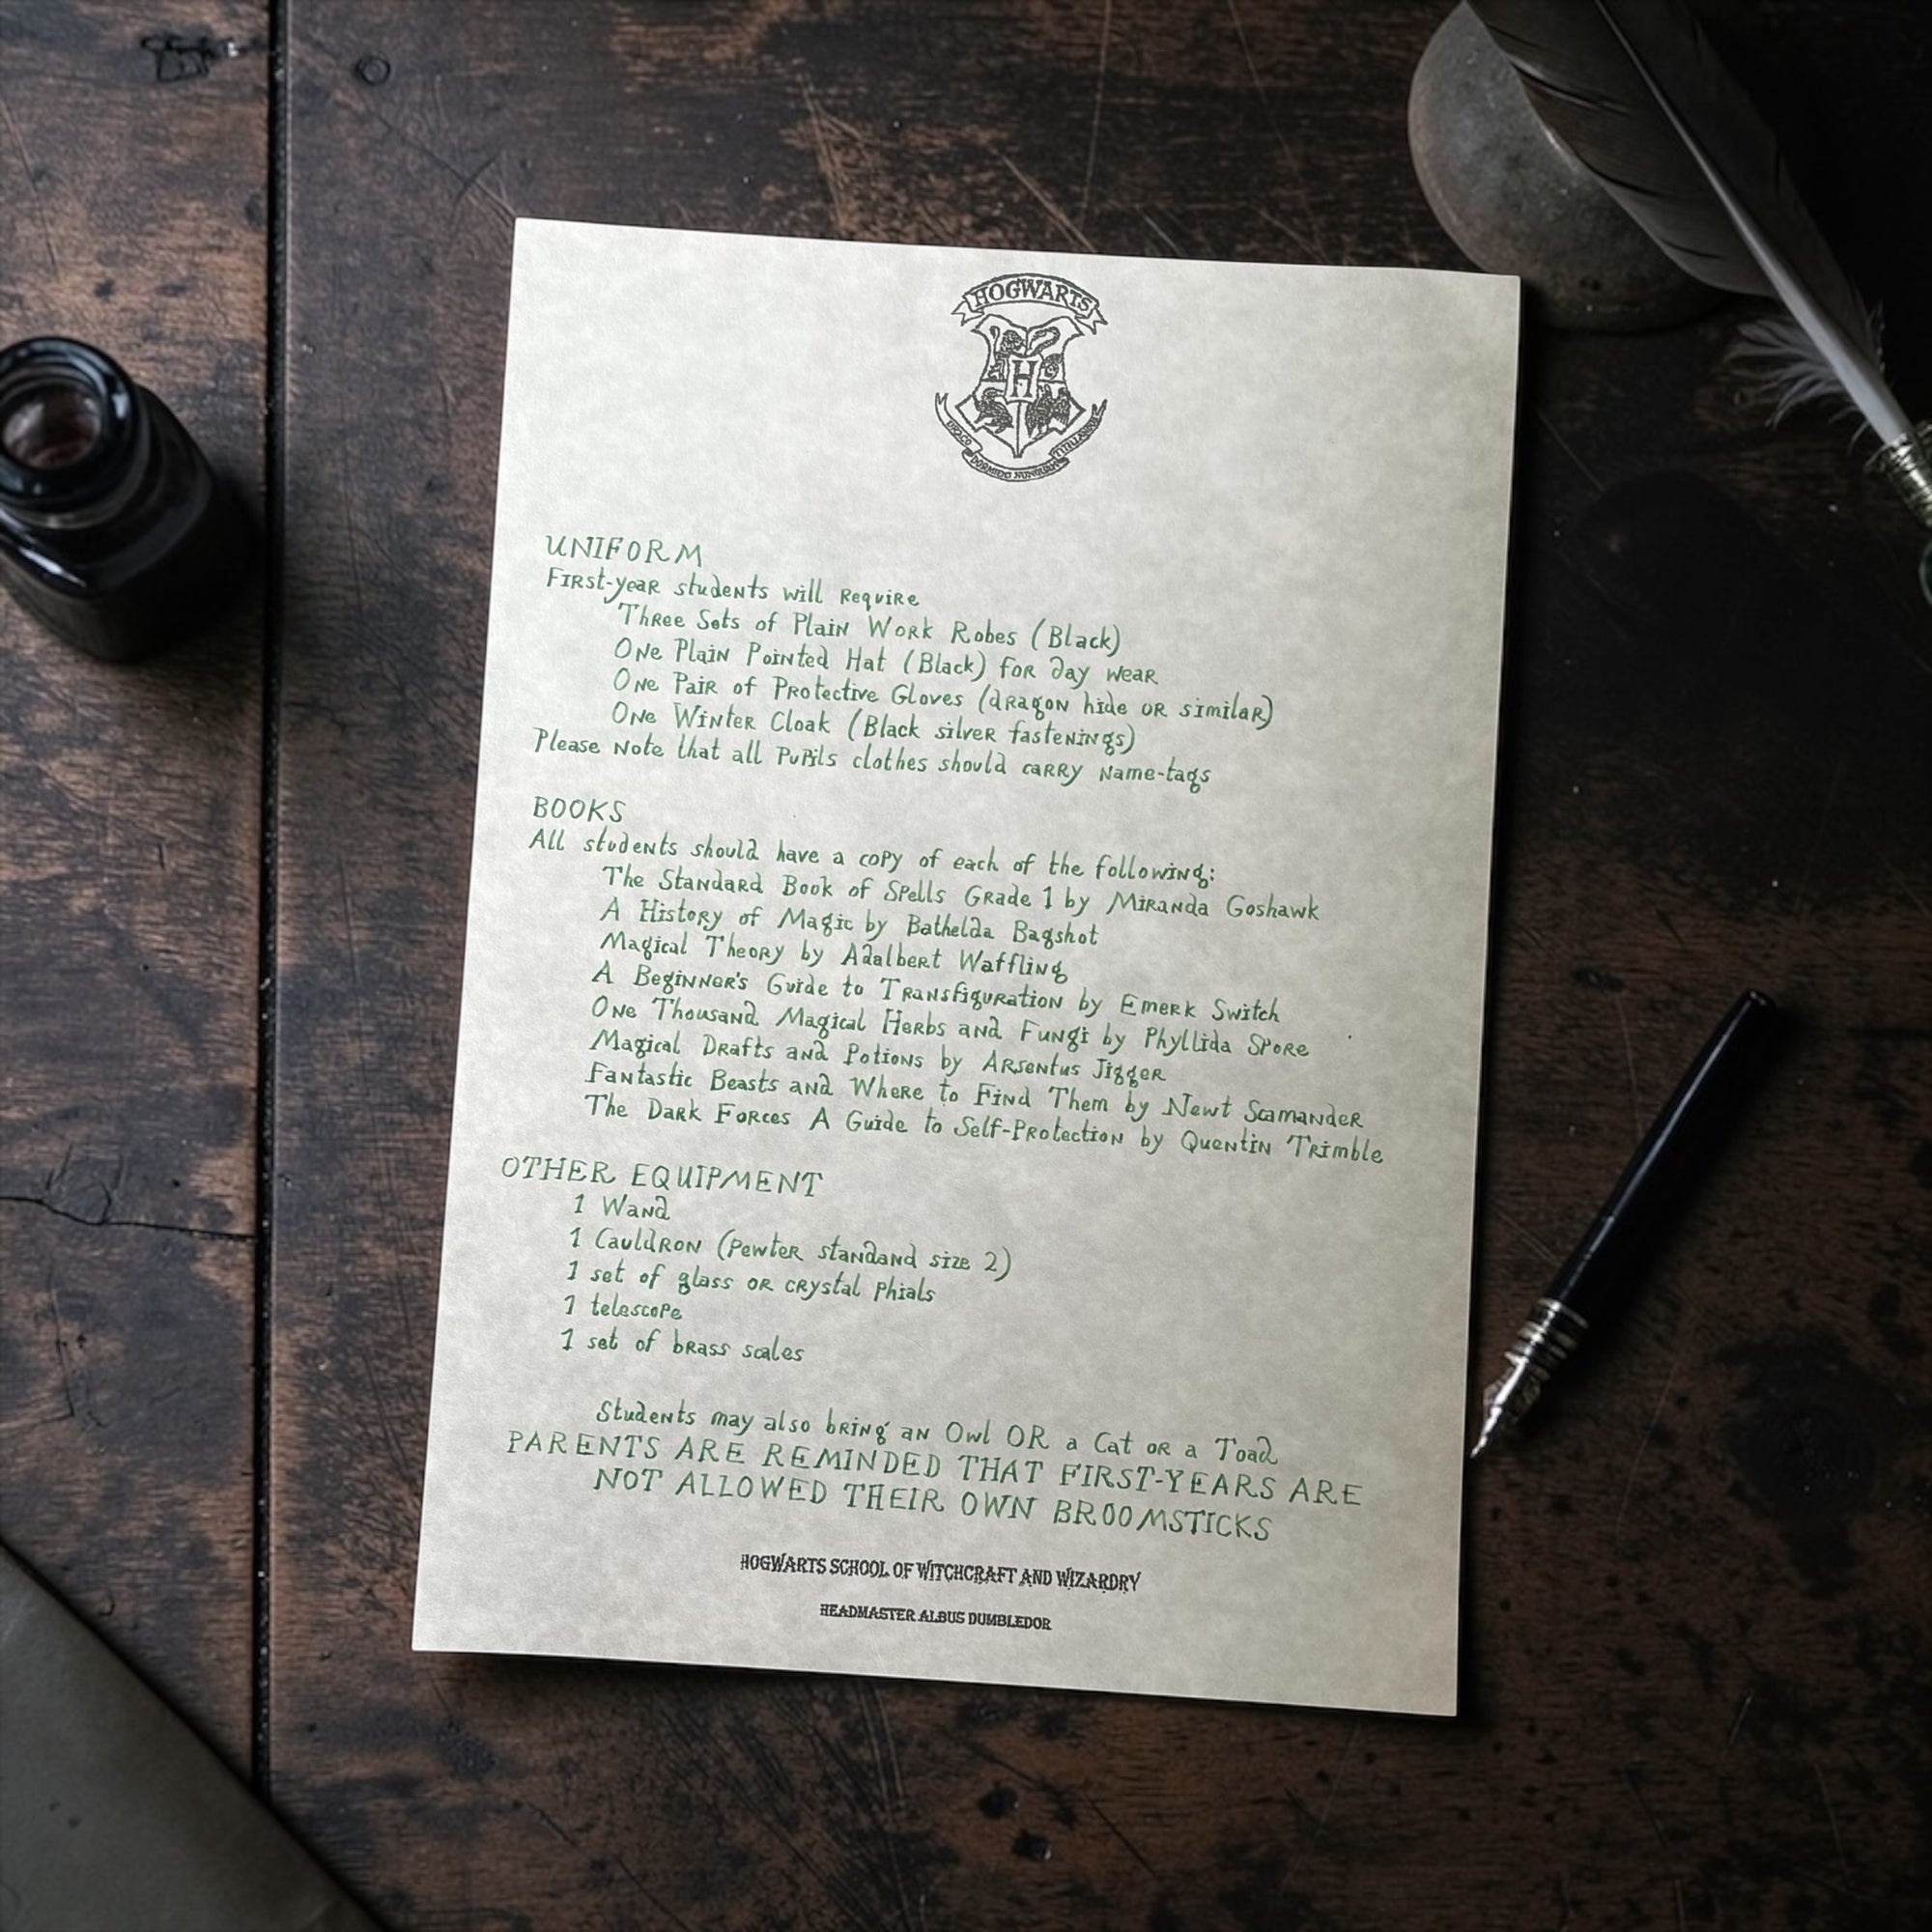 HOGWARTS
H
DRACO DORMIENS NUNQUAM TITILLANDUS
UNIFORM
First-year students will require
Three Sets of Plain Work Robes (Black)
One Plain Pointed Hat (Black) for day wear
One Pair of Protective Gloves (dragon hide or similar)
One Winter Cloak (Black silver fastenings)
Please note that all pupils clothes should carry name-tags
BOOKS
All students should have a copy of each of the following:
The Standard Book of Spells Grade 1 by Miranda Goshawk
A History of Magic by Bathelda Bagshot
Magical Theory by Adalbert Waffling
A Beginner's Guide to Transfiguration by Emerk Switch
One Thousand Magical Herbs and Fungi by Phyllida Spore
Magical Drafts and Potions by Arsentus Jigger
Fantastic Beasts and Where to Find Them by Newt Scamander
The Dark Forces A Guide to Self-Protection by Quentin Trimble
OTHER EQUIPMENT
1 Wand
1 Cauldron (pewter standand size 2)
1 set of glass or crystal phials
1 telescope
1 set of brass scales
Students may also bring an Owl OR a Cat or a Toad
PARENTS ARE REMINDED THAT FIRST-YEARS ARE
NOT ALLOWED THEIR OWN BROOMSTICKS
HOGWARTS SCHOOL OF WITCHCRAFT AND WIZARDRY
HEADMASTER ALBUS DUMBLEDOR